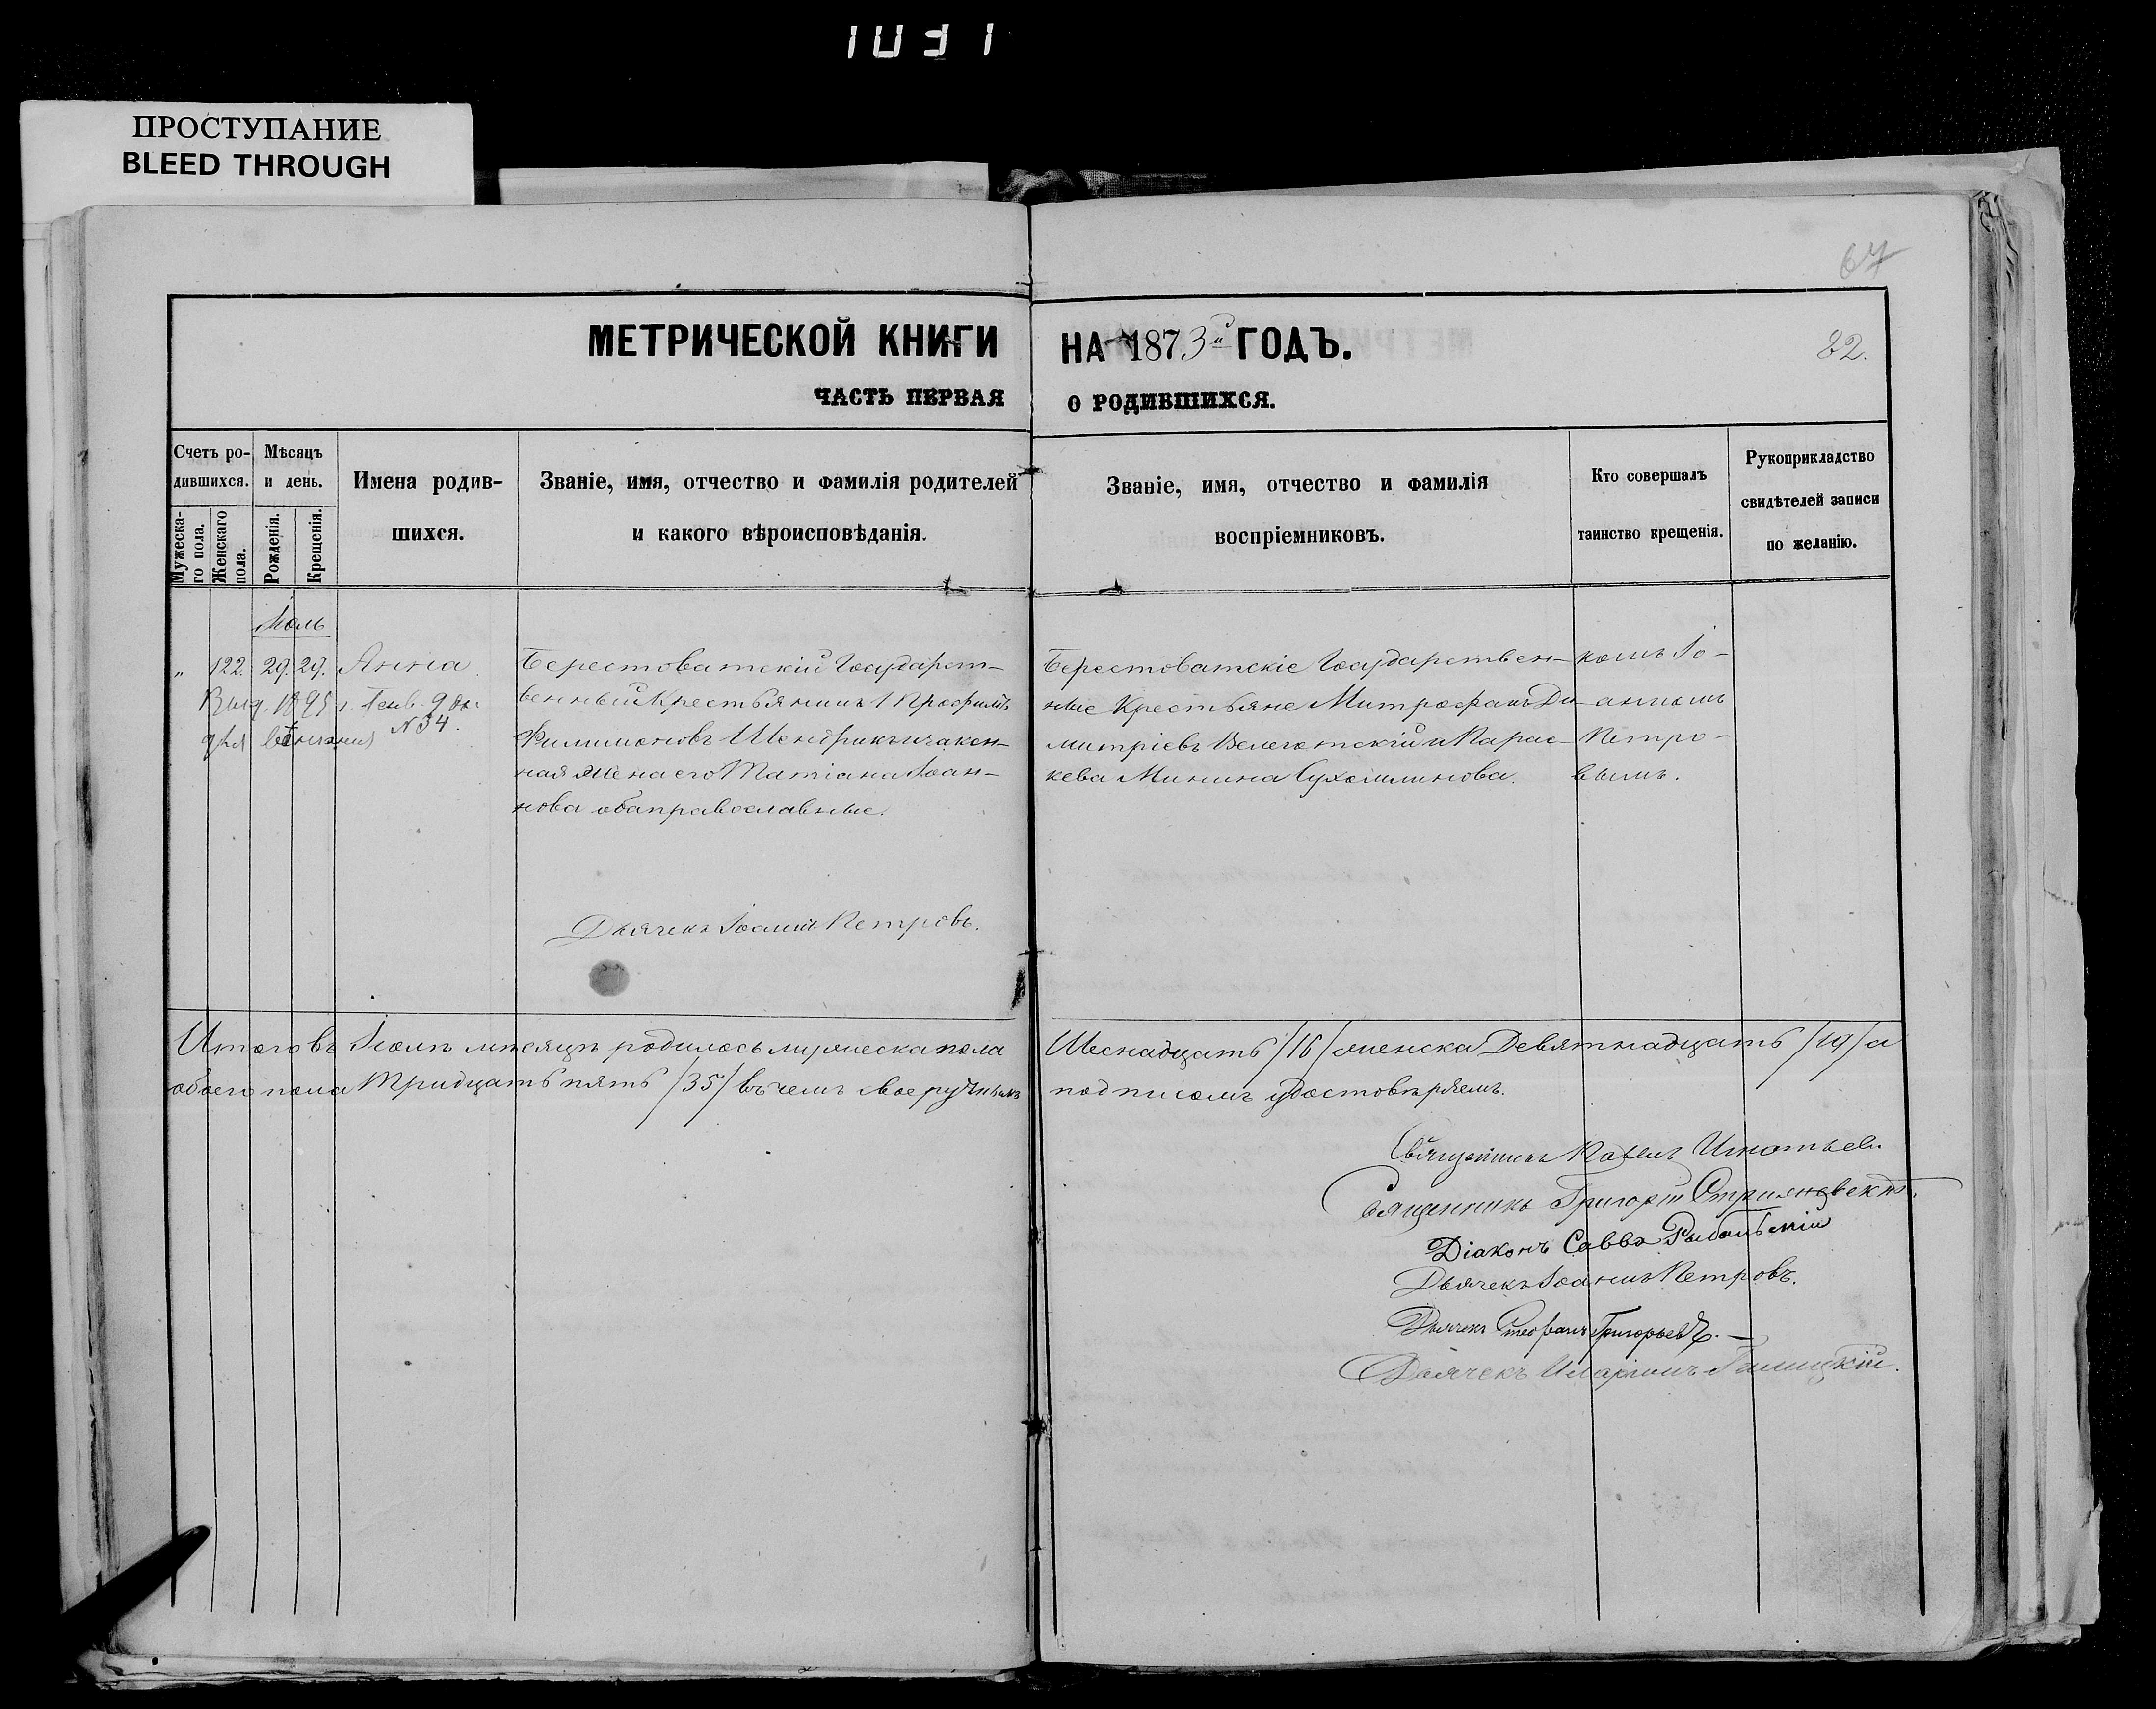 1031
ПРОСТУПАНИЕ
BLEED THROUGH
67
МЕТРИЧЕСКОЙ КНИГИ НА 1873й ГОДЪ.
82.
ЧАСТЬ ПЕРВАЯ О РОДИВШИХСЯ.
Счетъ ро-
дившихся.
Мужеска-
го пола.
Женскаго
пола.
Мѣсяцъ
и день.
Рожденія.
Крещенія.
Имена родив-
шихся.
Званіе, имя, отчество и фамилія родителей
и какого вѣроисповѣданія.
Званіе, имя, отчество и фамилія
воспріемниковъ.
Кто совершалъ
таинство крещенія.
Рукоприкладство
свидѣтелей записи
по желанію.
Іюль
" 122. 29. 29. Анна.
Выд. 1895 г. Генв. 9 дн.
для вѣнчанія N 34.
Берестоватскій Государст-
венный Крестьянинъ Трофимъ
Филимоновъ Шендрикъ и закон-
ная жена его Татіана Іоан-
нова оба православные.
Берестоватскіе Государствен-
ные Крестьяне Митрофанъ Ди-
митріевъ Велеготскій и Парас-
кева Минина Сухомлинова.
комъ Іо-
анномъ
Петро-
вымъ.
Дьячекъ Іоаннъ Петровъ.
Итого въ Іюлѣ мѣсяцѣ родилось мужеска пола Шеснадцать /16/ женска Девятнадцать /19/ а
обоего пола Тридцать пять /35/ въ чемъ своеручнымъ подписомъ удостовѣряемъ.
Священникъ Павелъ Игнатьевъ
Священникъ Григорій
Діаконъ Савва Рыбальскій
Дьячекъ Іоаннъ Петровъ.
Дьячекъ Стефанъ Григорьевъ.
Дьячекъ Иларіонъ